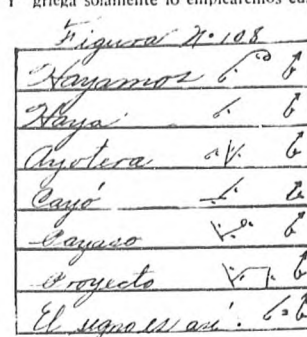 griega solamente lo emplearemos
Figura N.º 108
Hayamos
Haya
Ayotera
Cayó
Payaso
Proyecto
El signo es así: